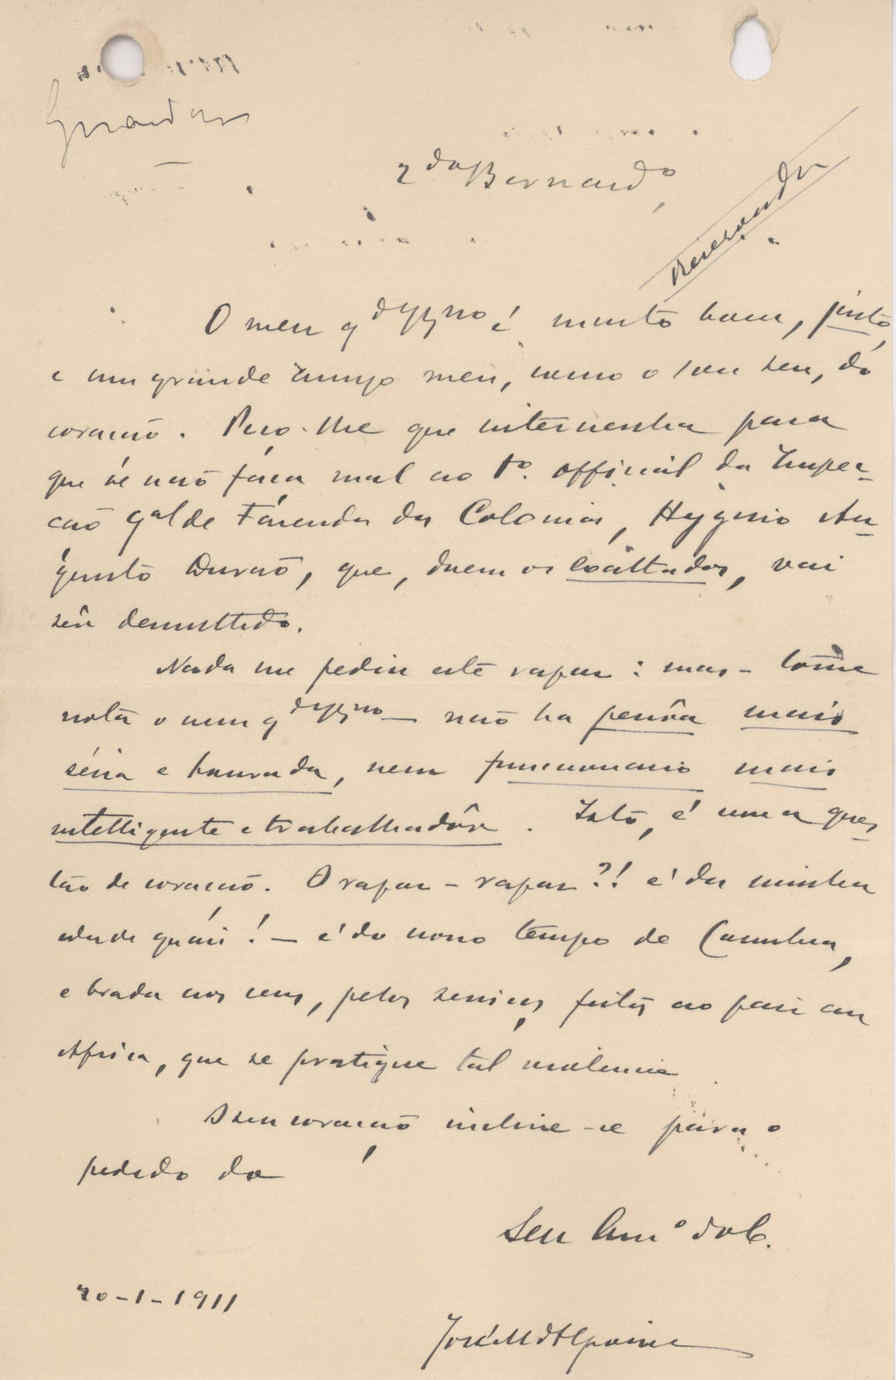 Guardar
Reservado
q.do Bernard.o,
O meu q.dissimo é muito bom, justo,
e um grande amigo meu, como o sou seu, do
coração. Peço-lhe que intervenha para
que se não faça mal ao 1º. official da Inspec-
ção G.al de Fazenda das Colonias, Hygino Au-
gusto Durão, que, dizem os exaltados, vai
sêr demittido.
Nada me pediu este rapaz: mas - tome
nota o meu q.dissimo - não ha pessôa mais
séria e honrada, nem funccionario mais
intelligente e trabalhadôr. Isto, é uma ques-
tão de coração. O rapaz - rapaz?! é da minha
edade quási! - é do nosso tempo de Coimbra,
e brada aos ceus, pelos serviços feitos ao paiz em
Africa, que se pratique tal violencia
O seu coração incline-se para o
pedido do
Seu Am.º do C.
20-1-1911
José M d'Alpoim